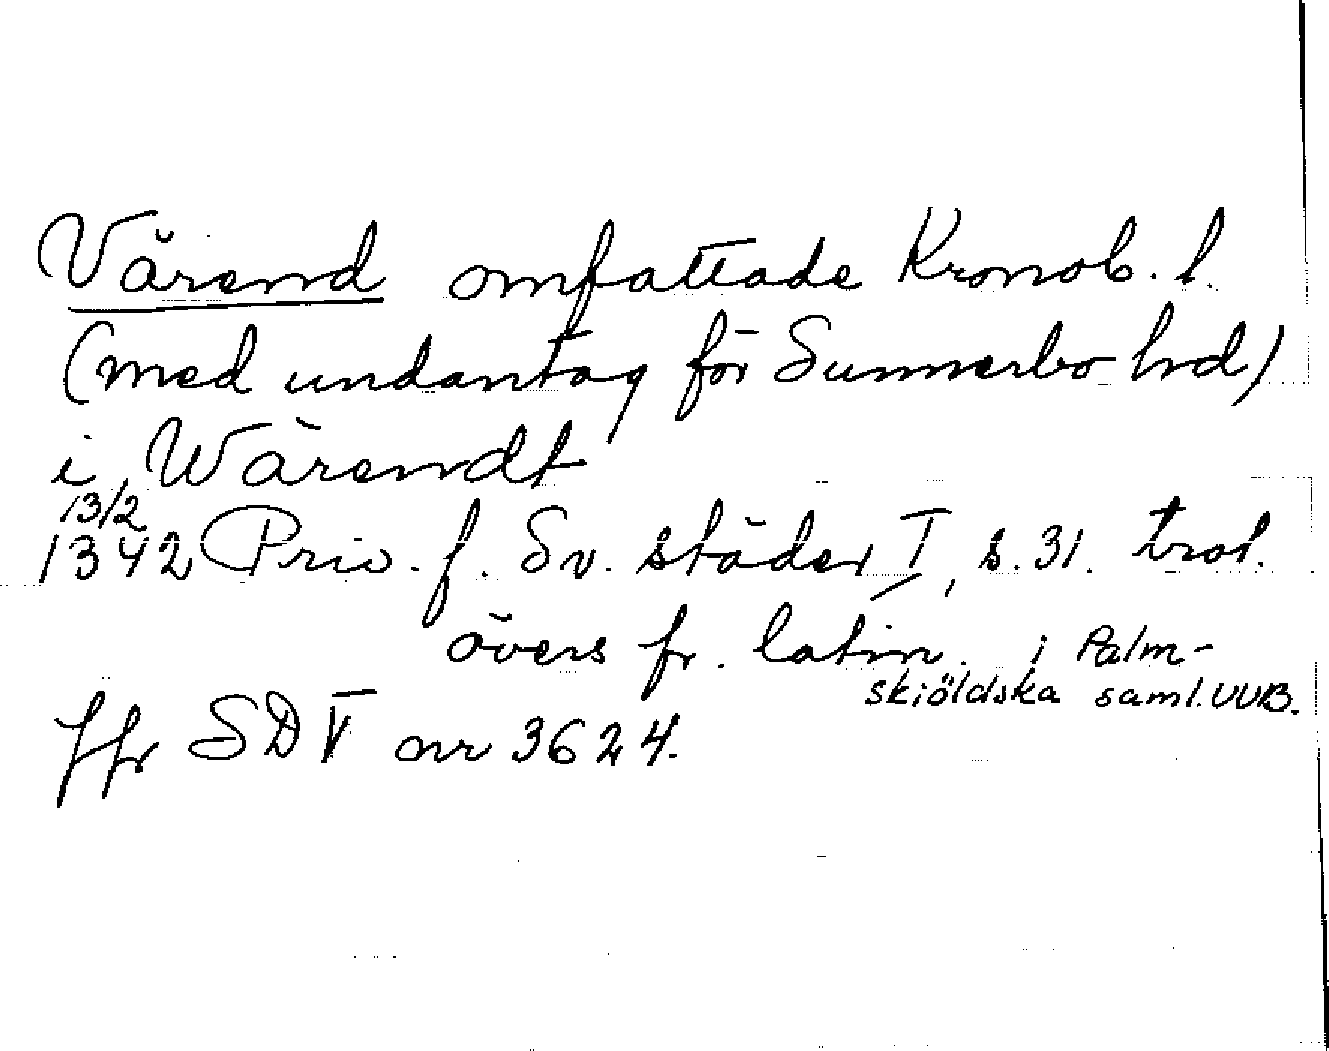 Värend omfattade Kronob. l.
(med undantag för Sunnerbo hd)
i Wärendt
13/2
1342 Priv. f. Sv. städer I, s. 31. trol.
övers fr. latin. i Palm-
skiöldska saml. UUB.
Jfr SD V nr 3624.